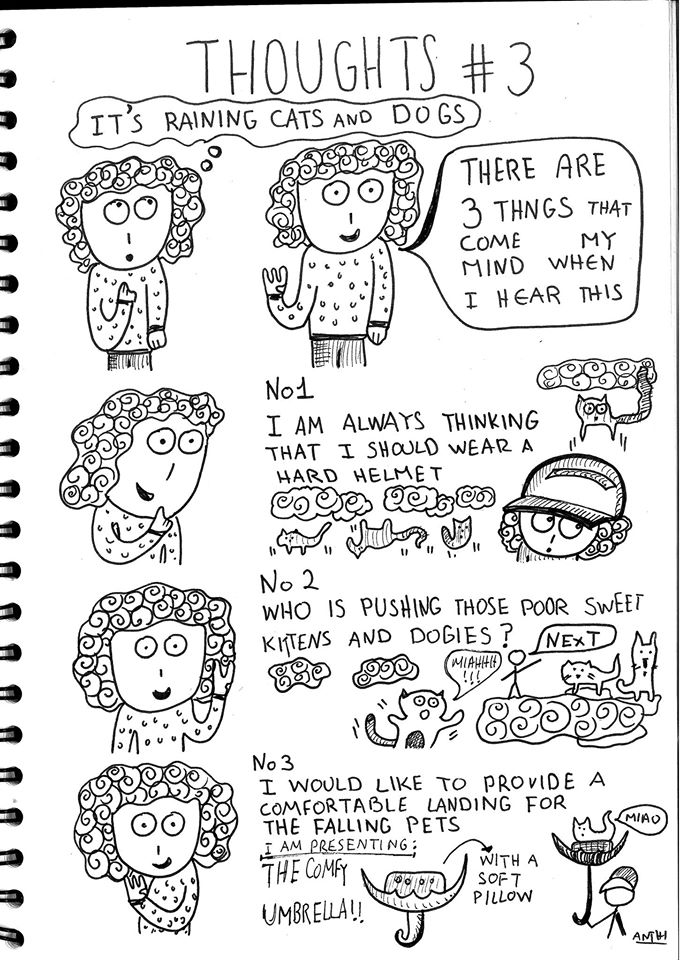 THOUGHTS #3
IT'S RAINING CATS AND DOGS
THERE ARE
3 THNGS THAT
COME MY
MIND WHEN
I HEAR THIS
No1
I AM ALWAYS THINKING
THAT I SHOULD WEAR A
HARD HELMET
No 2
WHO IS PUSHING THOSE POOR SWEET
KITTENS AND DOGIES?
NEXT
MIAHHH
!!!
No 3
I WOULD LIKE TO PROVIDE A
COMFORTABLE LANDING FOR
THE FALLING PETS
I AM PRESENTING:
THE COMFY
UMBRELLA!!
WITH A
SOFT
PILLOW
MIAO